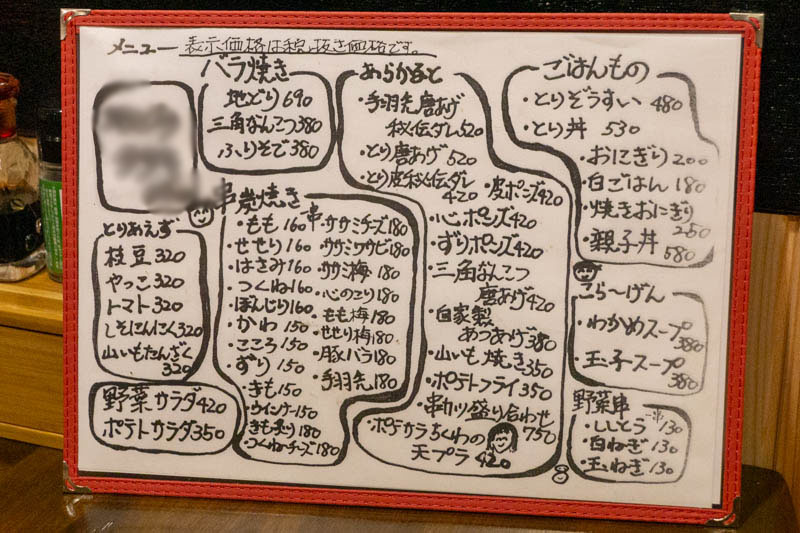 メニュー 表示価格は税抜き価格です。
バラ焼き
地どり690
三角なんこつ380
ふりそで380
とりあえず
枝豆320
やっこ320
トマト320
しそにんにく320
山いもたんざく
320
野菜サラダ420
ポテトサラダ350
串炭焼き
・もも160
・せせり160
・はさみ160
・つくね160
・ぼんじり160
・かわ150
・こころ150
・ずり150
・きも150
・ウインナー150
・きも炙り180
・つくねチーズ180
串
・ササミチーズ180
・ササミワサビ180
・ササミ梅180
・心のこり180
・もも梅180
・せせり梅180
・豚バラ180
・手羽先180
あらかると
・手羽先唐あげ
秘伝ダレ520
・とり唐あげ520
・とり皮秘伝ダレ
420
・皮ポンズ420
・心ポンズ420
・ずりポンズ420
・三角なんこつ
唐あげ420
・自家製
あつあげ380
・山いも焼き350
・ポテトフライ350
・串カツ盛り合わせ
750
・ポテサラちくわの
天プラ420
ごはんもの
・とりぞうすい480
・とり丼530
・おにぎり200
・白ごはん180
・焼きおにぎり
250
・親子丼
580
こら〜げん
・わかめスープ
380
・玉子スープ
380
野菜串
一串
・ししとう130
・白ねぎ130
・玉ねぎ130